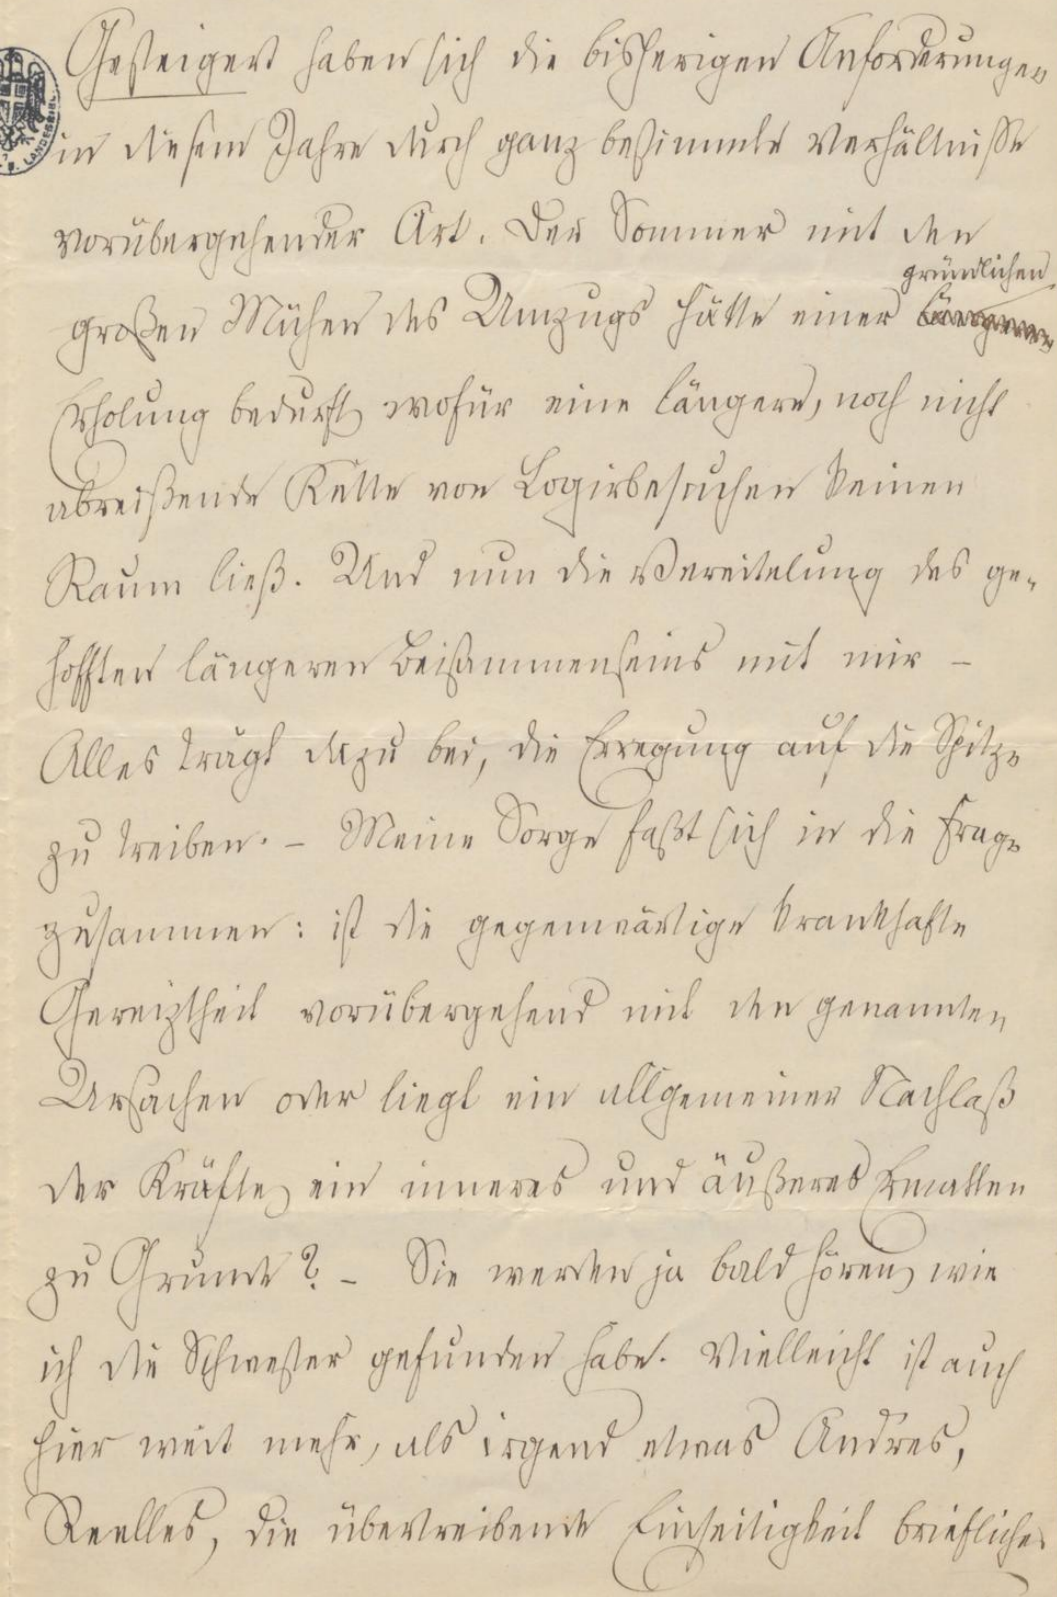 Gesteigert haben sich die bisherigen Anforderungen
in diesem Jahre durch ganz bestimmte Verhältnisse
vorübergehender Art. Der Sommer mit den
gründlichen
großen Mühen des Umzugs hätte einer längeren
Erholung bedurft, wofür eine längere, noch nicht
abreißende Kette von Logirbesuchen keinen
Raum ließ. Und nun die Vereitelung des ge-
hofften längeren Beisammenseins mit mir –
Alles trägt dazu bei, die Erregung auf die Spitze
zu treiben. – Meine Sorge faßt sich in die Frage
zusammen: ist die gegenwärtige krankhafte
Gereiztheit vorübergehend mit den genannten
Ursachen oder liegt ein allgemeiner Nachlaß
der Kräfte, ein inneres und äußeres Ermatten
zu Grunde? – Sie werden ja bald hören, wie
ich die Schwester gefunden habe. Vielleicht ist auch
hier weit mehr, als irgend etwas Andres,
Reelles, die übertreibende Einseitigkeit brieflicher